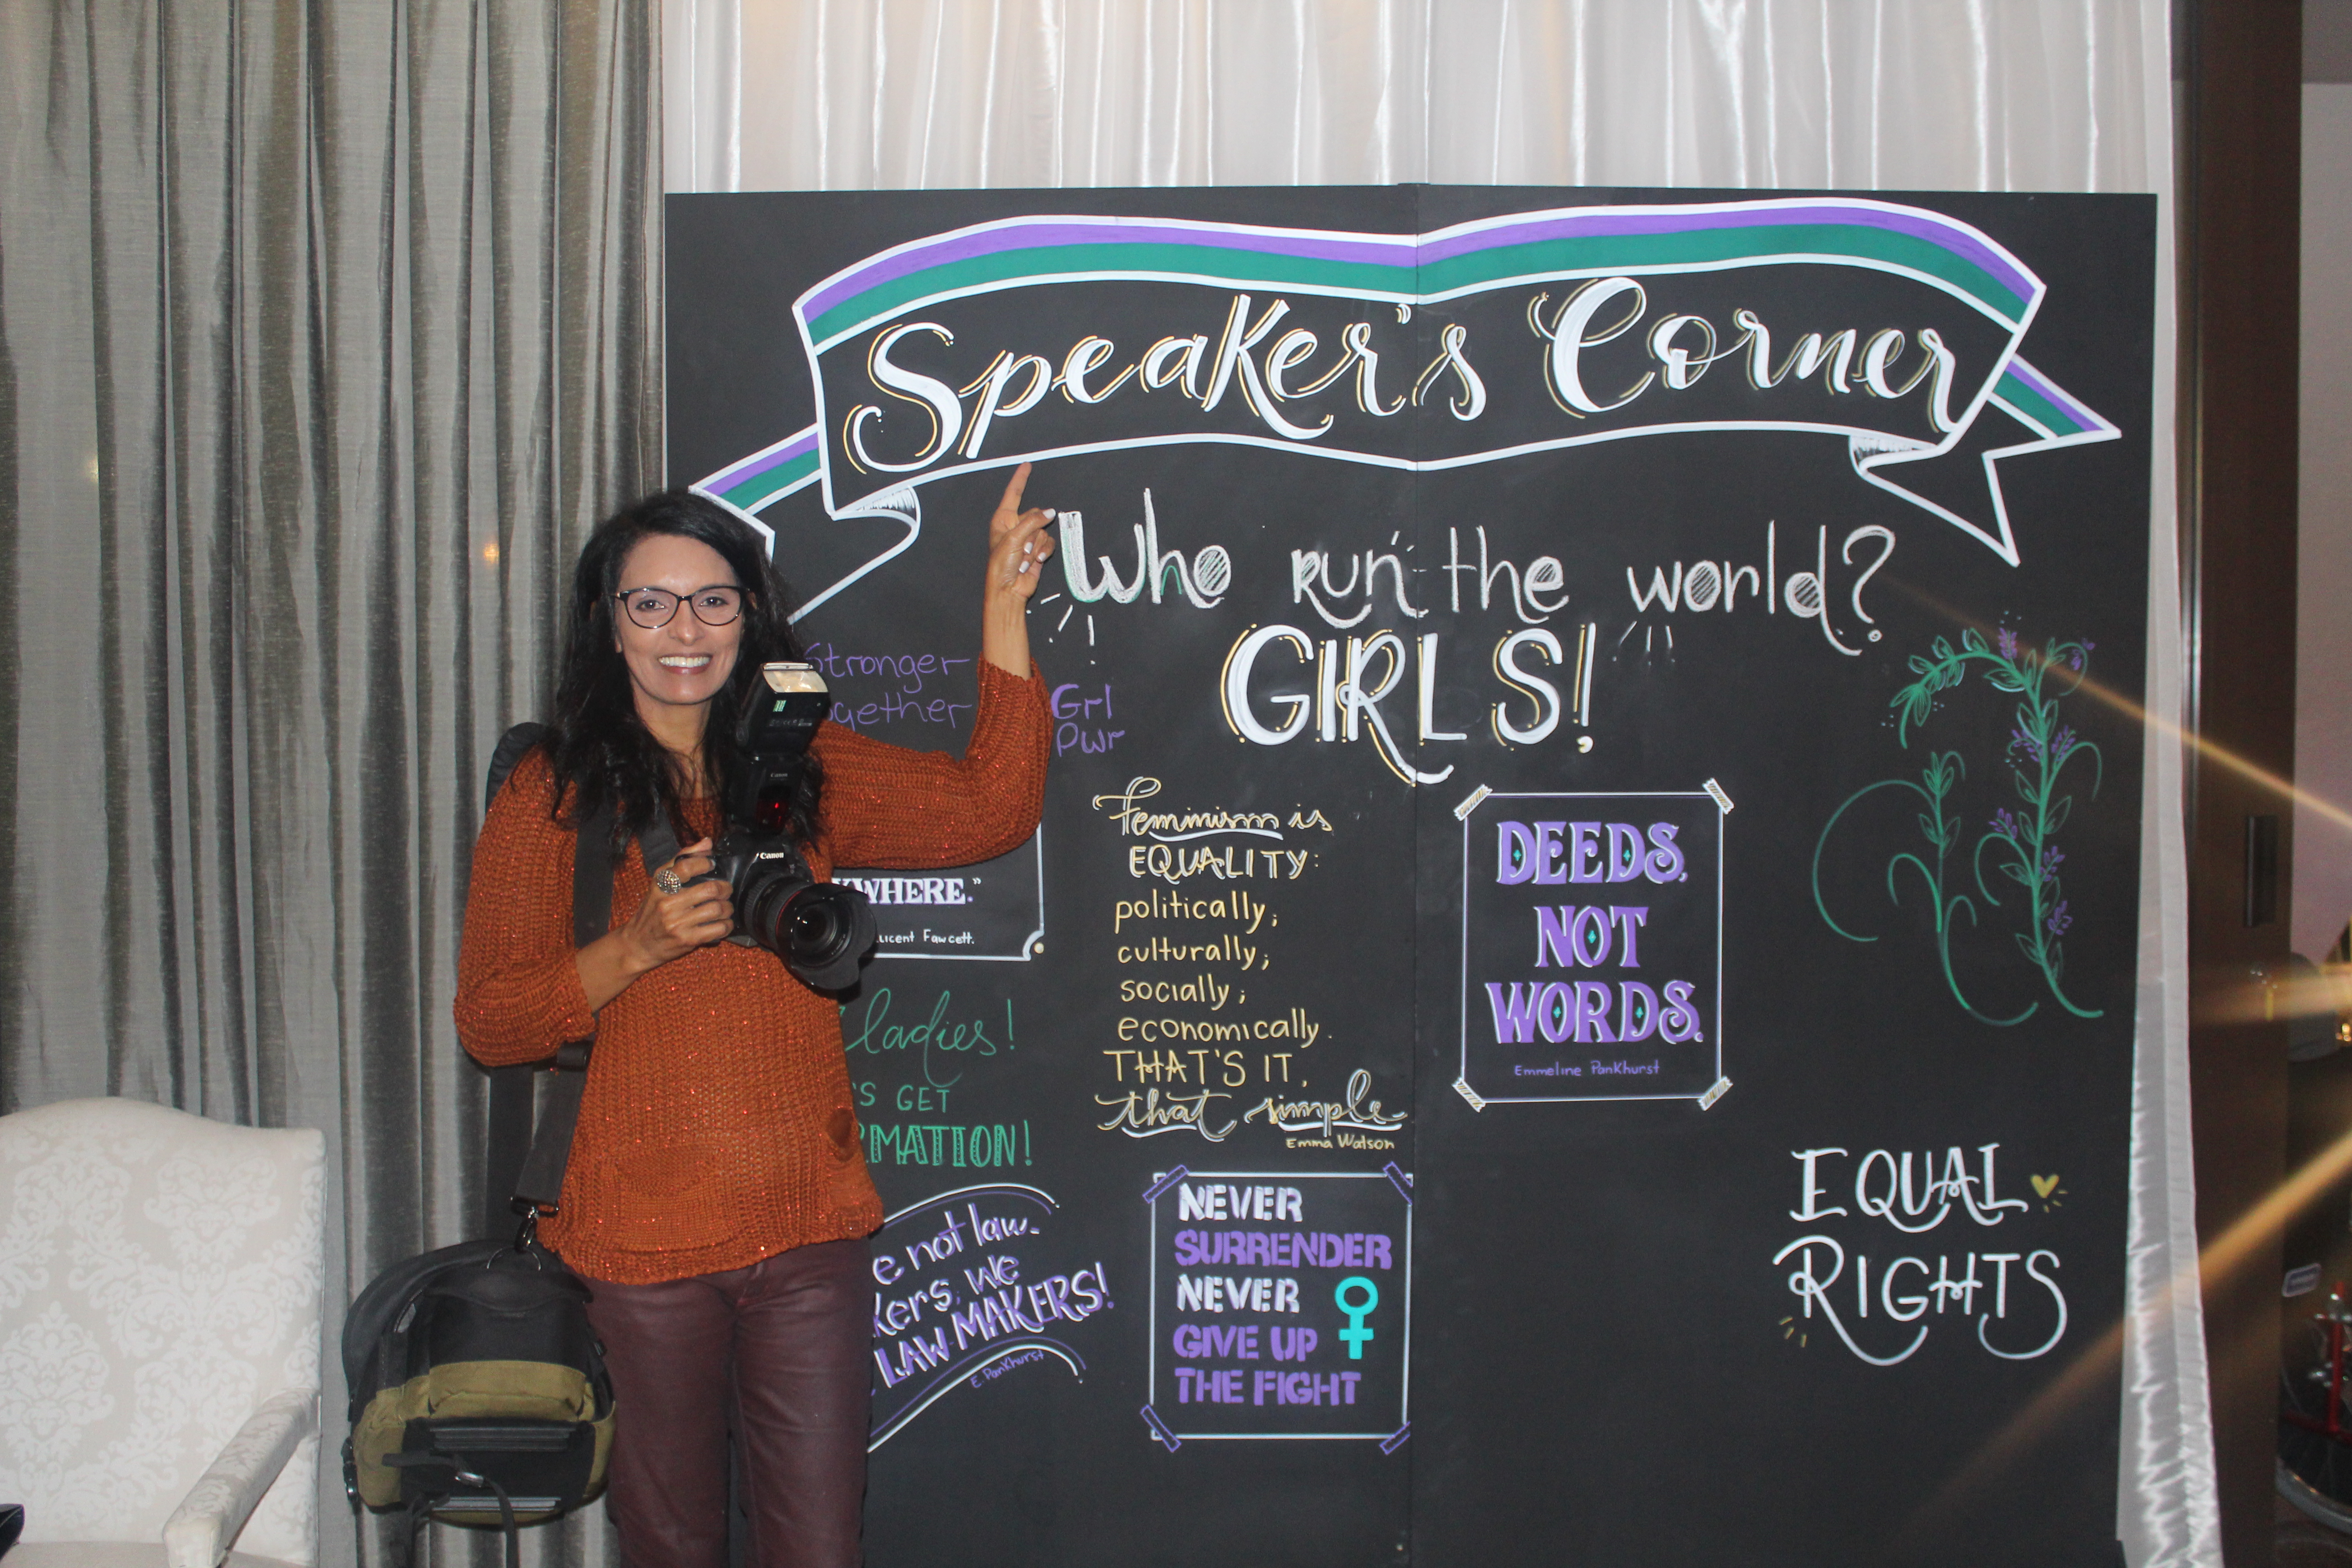 Speaker's Corner
Who run the world?
GIRLS!
Stronger
together
Grl
Pwr
YWHERE."
licent Fawcett.
ladies!
'S GET
RMATION!
e not law-
kers, we
LAW-MAKERS!
E. Pankhurst
Feminism is
EQUALITY:
politically;
culturally;
socially;
economically.
THAT'S IT,
that simple
Emma Watson
NEVER
SURRENDER
NEVER
GIVE UP
THE FIGHT
DEEDS,
NOT
WORDS.
Emmeline Pankhurst
EQUAL
RIGHTS
Canon
Canon